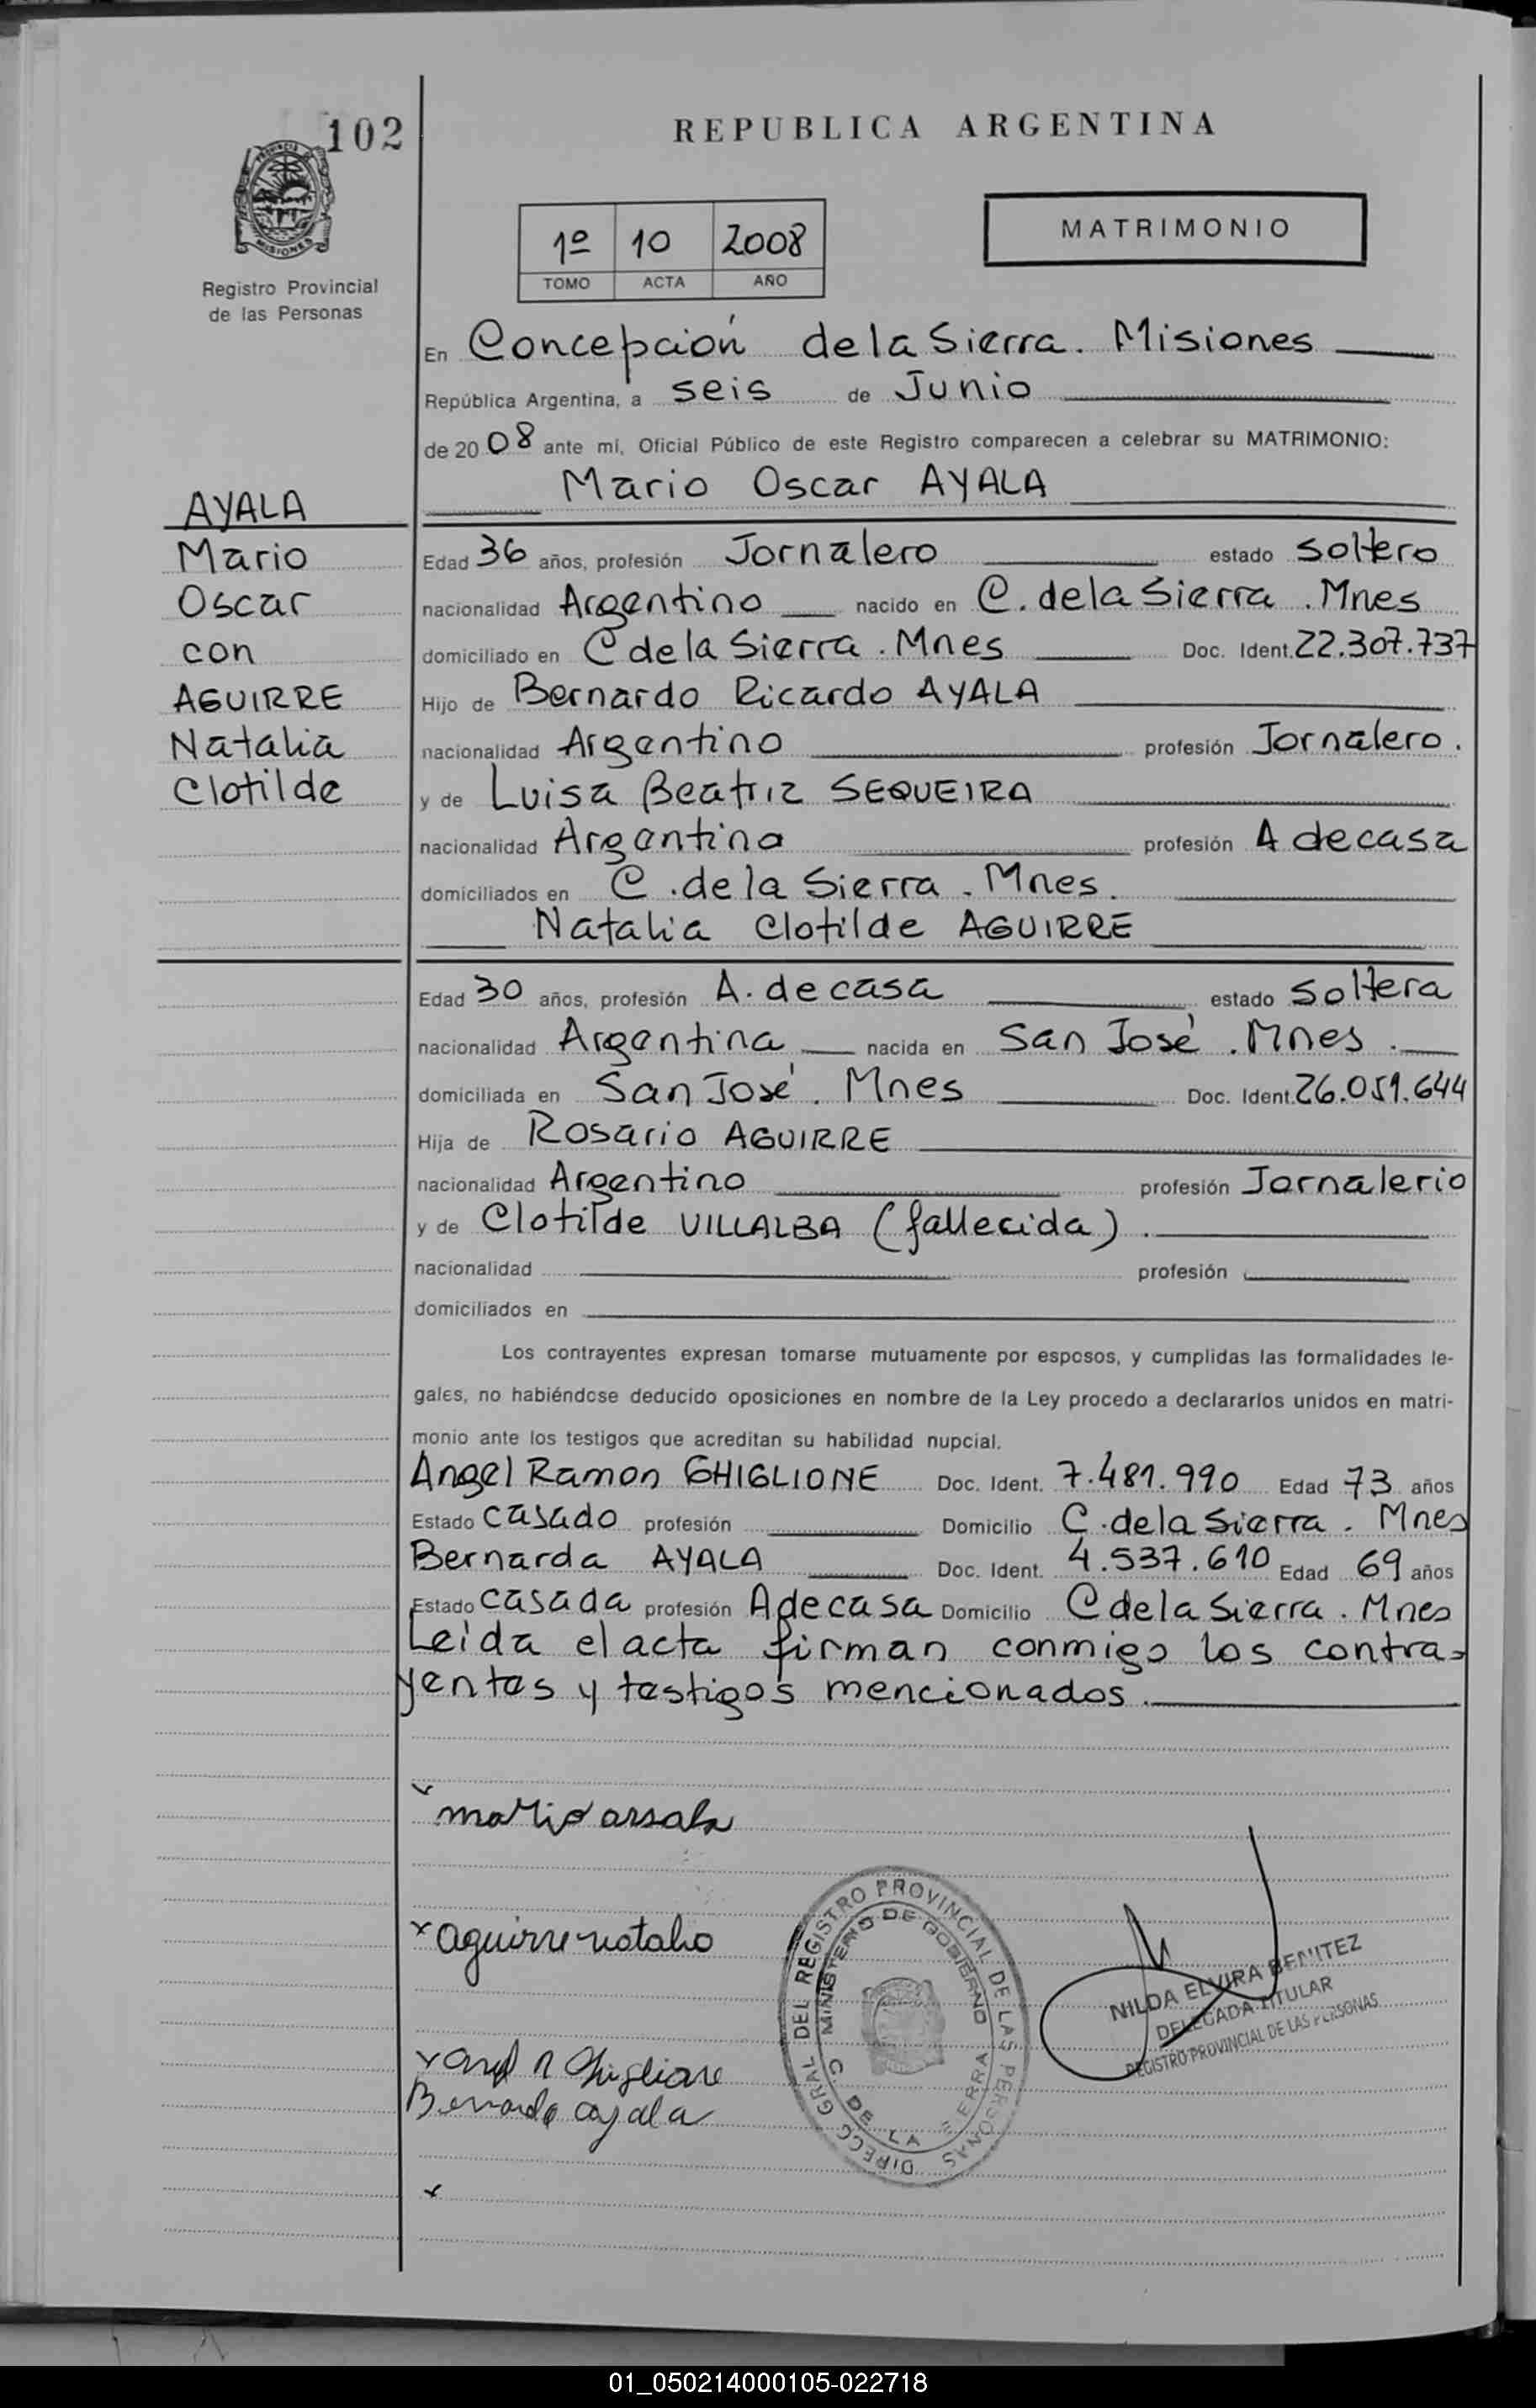 102
REPUBLICA ARGENTINA
PROVINCIA DE MISIONES
Registro Provincial
de las Personas
1º 10 2008
TOMO ACTA AÑO
MATRIMONIO
En Concepción de la Sierra. Misiones
República Argentina, a seis de Junio
de 2008 ante mí, Oficial Público de este Registro comparecen a celebrar su MATRIMONIO:
Mario Oscar AYALA
AYALA
Mario
Oscar
con
AGUIRRE
Natalia
Clotilde
Edad 36 años, profesión Jornalero estado soltero
nacionalidad Argentino nacido en C. de la Sierra. Mnes
domiciliado en C de la Sierra. Mnes Doc. Ident. 22.307.737
Hijo de Bernardo Ricardo AYALA
nacionalidad Argentino profesión Jornalero.
y de Luisa Beatriz SEQUEIRA
nacionalidad Argentina profesión A de casa
domiciliados en C. de la Sierra. Mnes.
Natalia Clotilde AGUIRRE
Edad 30 años, profesión A. de casa estado soltera
nacionalidad Argentina nacida en San José. Mnes.
domiciliada en San José. Mnes Doc. Ident. 26.051.644
Hija de Rosario AGUIRRE
nacionalidad Argentino profesión Jornalerio
y de Clotilde VILLALBA (fallecida).
nacionalidad profesión
domiciliados en
Los contrayentes expresan tomarse mutuamente por esposos, y cumplidas las formalidades le-
gales, no habiéndose deducido oposiciones en nombre de la Ley procedo a declararlos unidos en matri-
monio ante los testigos que acreditan su habilidad nupcial.
Angel Ramon GHIGLIONE Doc. Ident. 7.481.990 Edad 73 años
Estado casado profesión Domicilio C. de la Sierra. Mnes
Bernarda AYALA Doc. Ident. 4.537.610 Edad 69 años
Estado casada profesión A de casa Domicilio C de la Sierra. Mnes
Leida el acta firman conmigo los contra-
yentes y testigos mencionados.
x aguirre natalia
Bernarda ayala
DIRECC GRAL DEL REGISTRO PROVINCIAL DE LAS PERSONAS
MINISTERIO DE GOBIERNO
C. DE LA SIERRA
NILDA ELVIRA BENITEZ
DELEGADA TITULAR
REGISTRO PROVINCIAL DE LAS PERSONAS
x
01_050214000105-022718